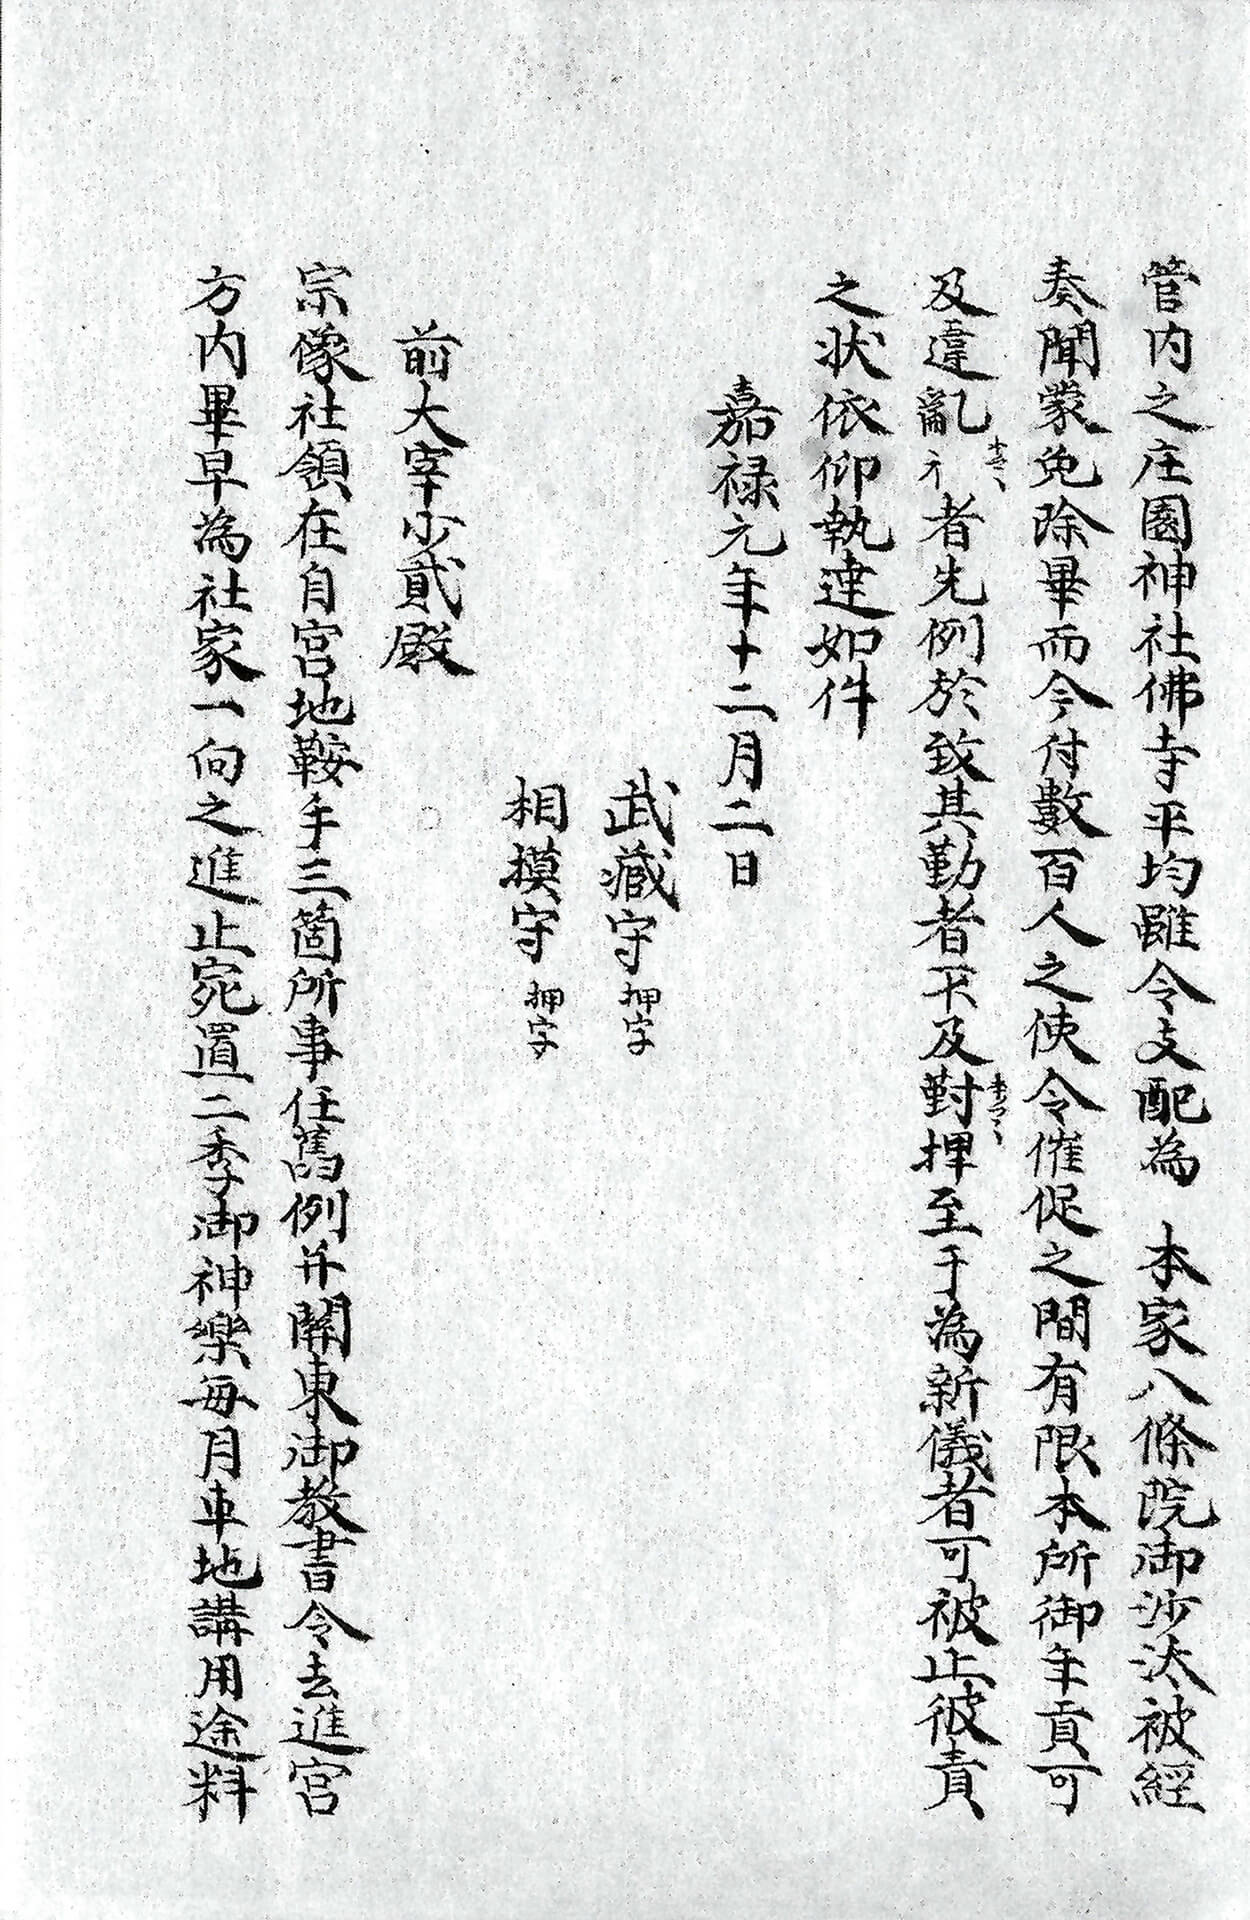 管内之庄園神社佛寺平均雖令支配為　本家八條院御沙汰被經
奏聞蒙免除畢而今付數百人之使令催促之間有限本所御年貢可
及違亂ネ者先例於致其勤者不及對押至于為新儀者可被止彼責
之状依仰執達如件
嘉禄元年十二月二日
武蔵守 押字
相摸守 押字
前大宰少貳殿
宗像社領在自宮地鞍手三箇所事任舊例并關東御教書令去進宮
方内畢早為社家一向之進止宛置二季御神樂毎月車地講用途料